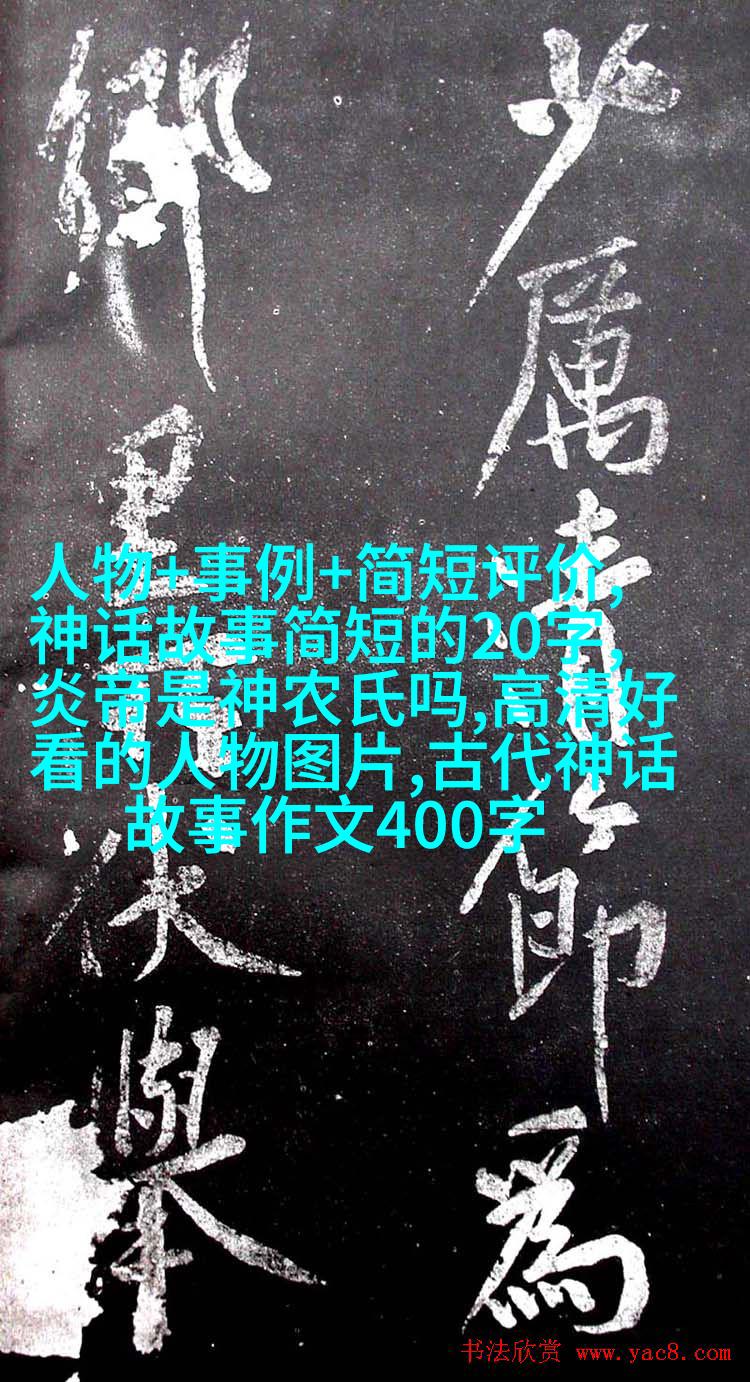 少厲清節為
鄉里伏舉
人物+事例+简短评价,
神话故事简短的20字,
炎帝是神农氏吗,高清好
看的人物图片,古代神话
故事作文400字
书法欣赏 www.yac8.com